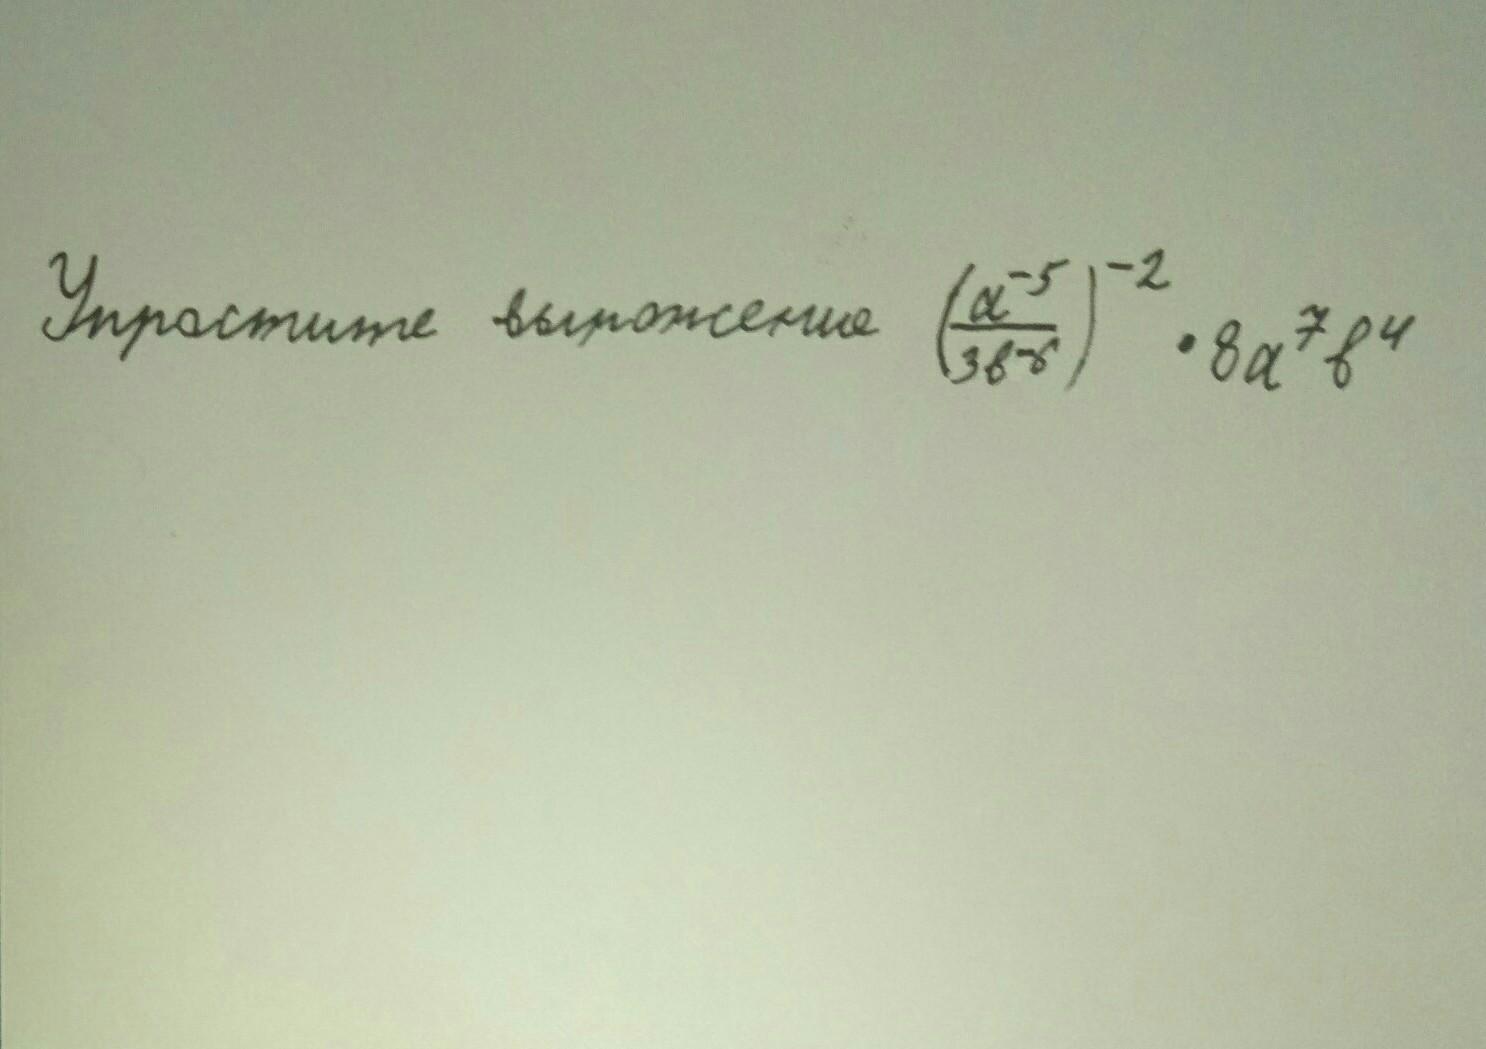 Упростите выражение (a⁻⁵/3b⁻⁸)⁻² · 8a⁷b⁴